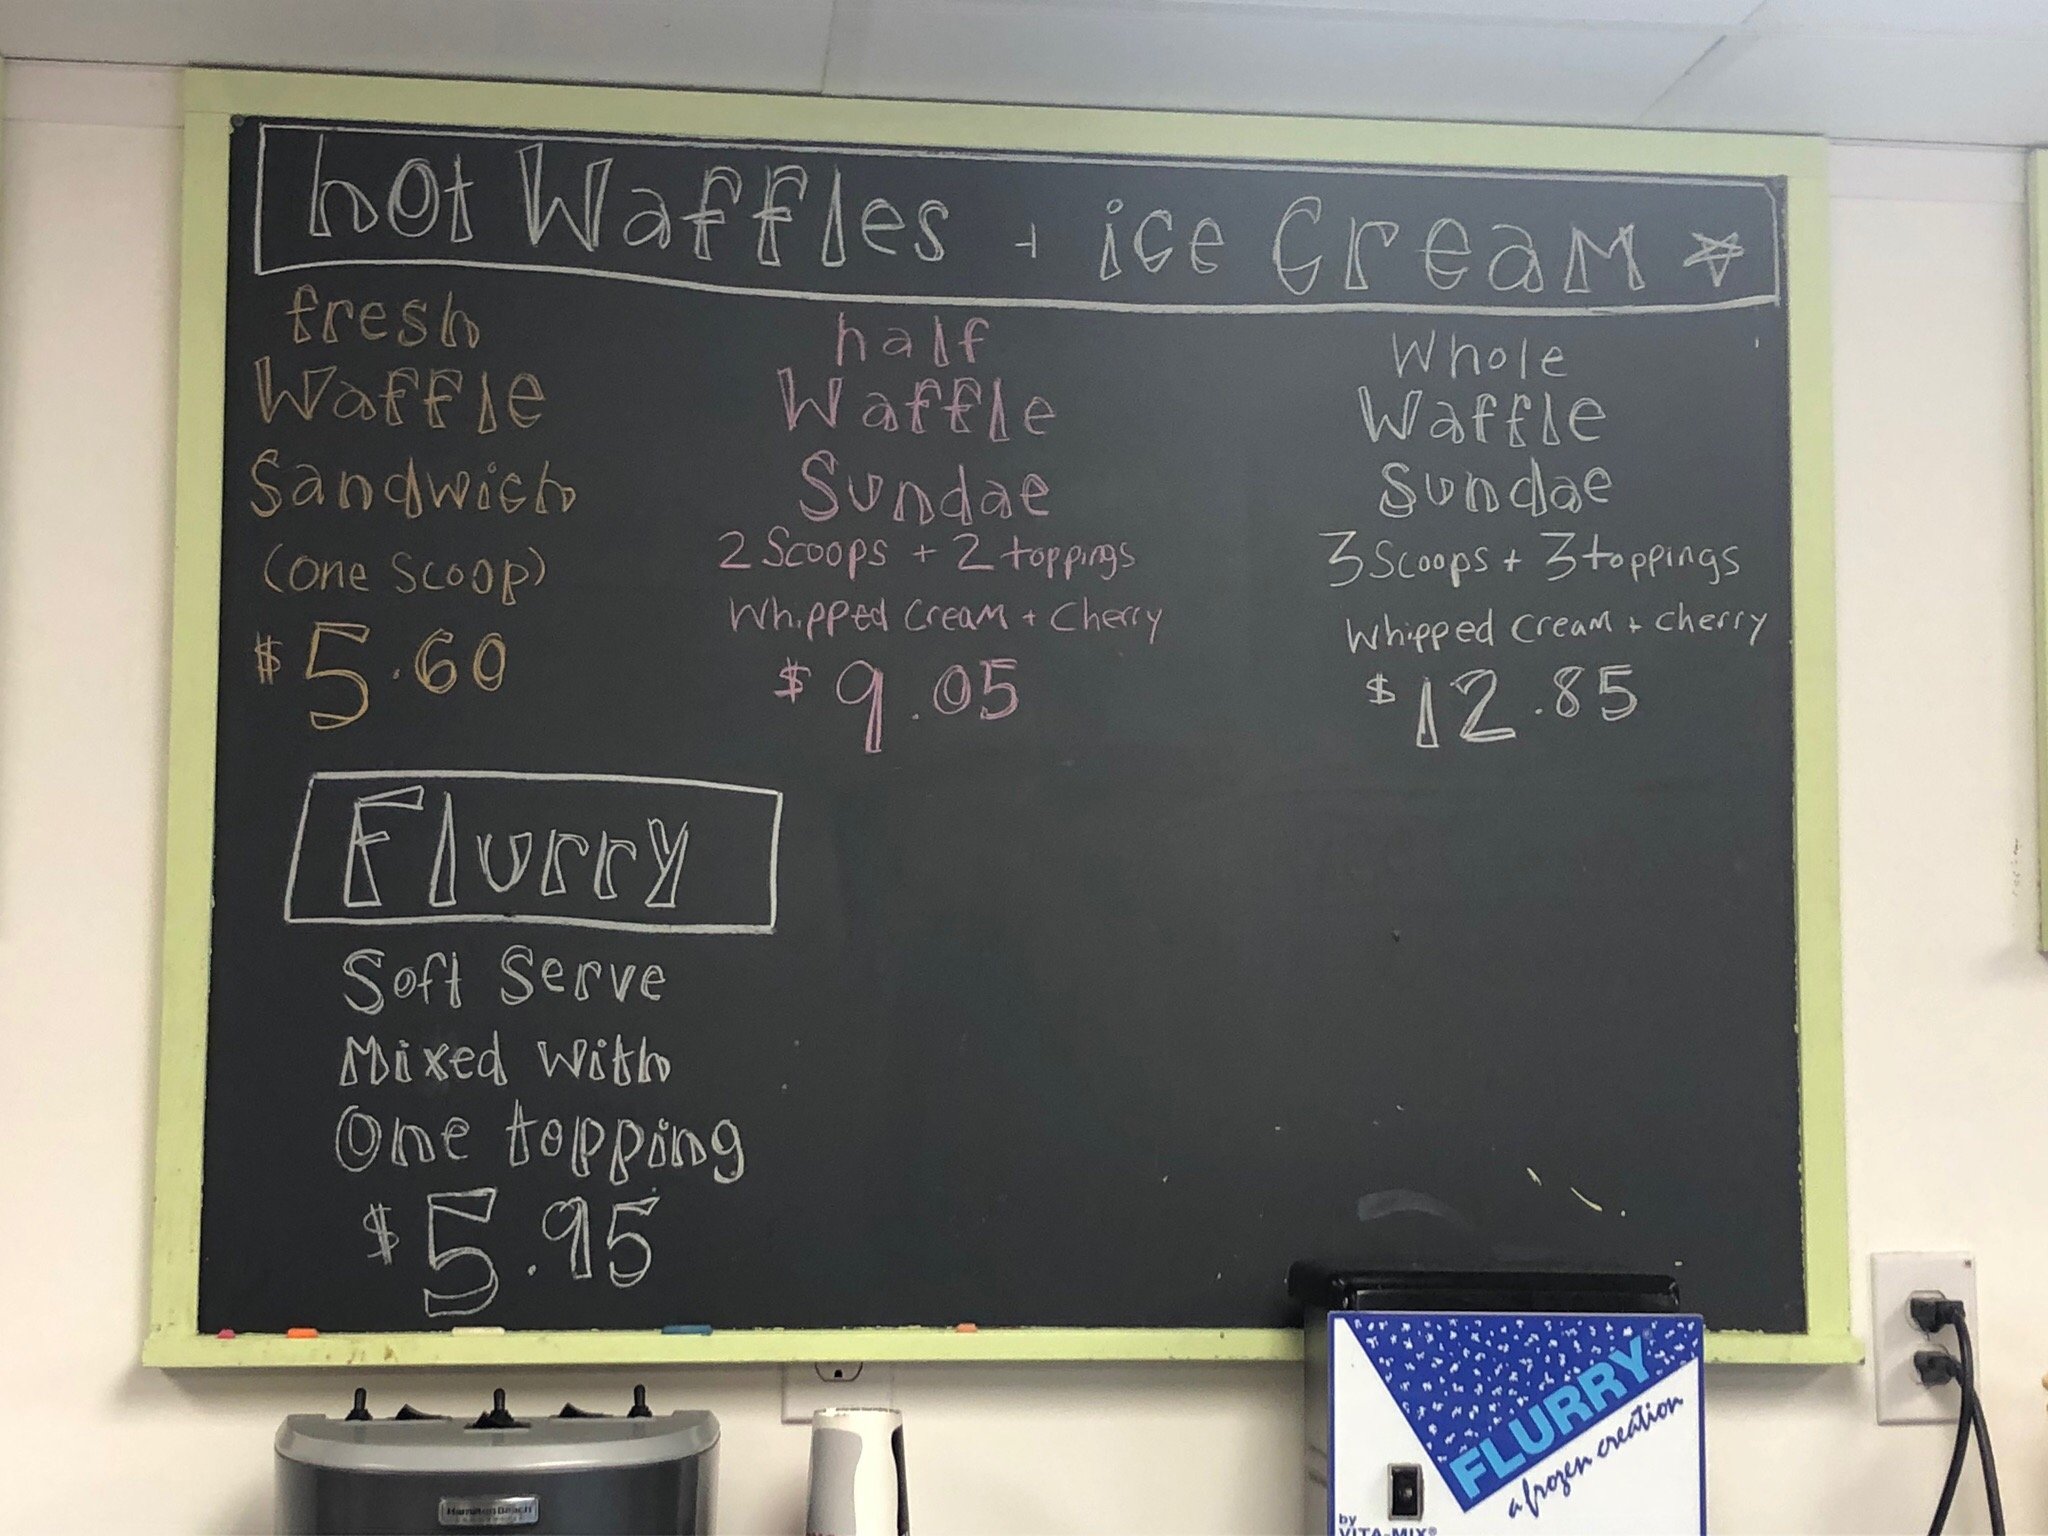 hot Waffles + ice Cream
fresh
Waffle
Sandwich
(one Scoop)
$5.60
half
Waffle
Sundae
2 Scoops + 2 toppings
Whipped Cream + Cherry
$9.05
Whole
Waffle
Sundae
3 Scoops + 3 toppings
Whipped Cream + Cherry
$12.85
Flurry
Soft Serve
Mixed With
One topping
$5.95
Hamilton Beach
FLURRY®
a frozen creation
by
VITA-MIX®